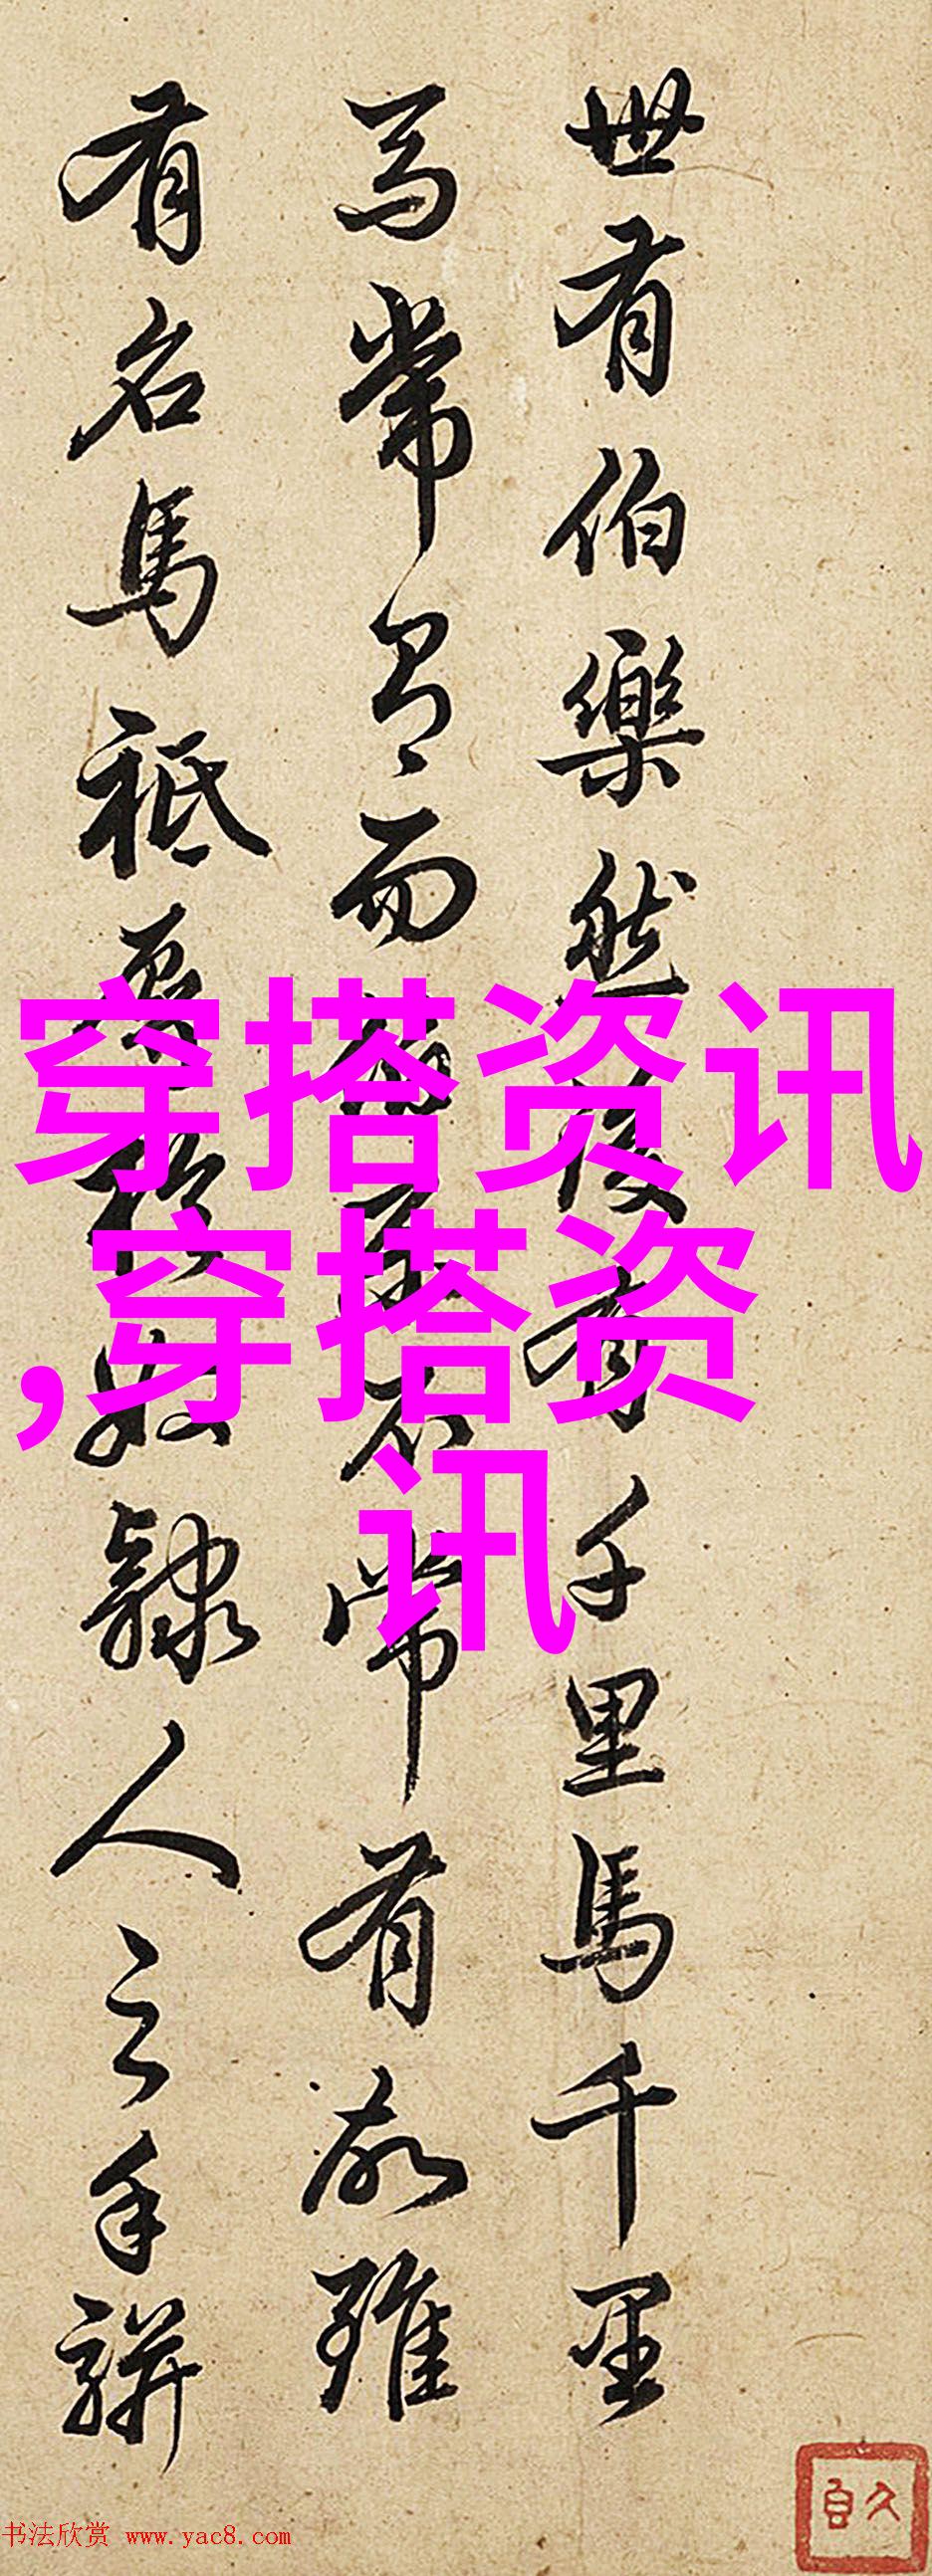 世有伯樂然後有千里馬千里
馬常有而伯樂不常有故雖
有名馬祇辱於奴隸人之手駢
穿搭资讯
,穿搭资
讯
书法欣赏 www.yac8.com